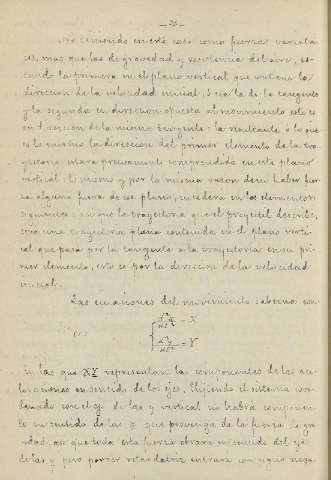 — 26 —
No existiendo en este caso como fuerzas constan-
tes, mas que las de gravedad y resistencia del aire, es-
tando la primera en el plano vertical que contiene la
direccion de la velocidad inicial, ó sea la de la tangente
y la segunda en direccion opuesta al movimiento esto es
en direccion de la misma tangente: la resultante ó lo que
es lo mismo la direccion del primer elemento de la tra-
yectoria estará precisamente comprendida en este plano
vertical: lo mismo y por la misma razon de no haber fuer-
za alguna fuera de ese plano, sucederá en los elementos
siguientes asi que la trayectoria que el proyectil describe,
será una trayectoria plana contenida en el plano verti-
cal que pasa por la tangente a la trayectoria en su pri-
mer elemento, esto es por la direccion de la velocidad
inicial.
Las ecuaciones del movimiento sabemos son
(1) { d²x/dt² = X
d²y/dt² = Y
en las que X Y representan las componentes de las ace-
leraciones en sentido de los ejes. Eligiendo el sistema coor-
denado con el eje de las y vertical no habrá componen-
te en sentido de las x que provenga de la fuerza de gra-
vedad, asi que toda esta fuerza obrará en sentido del eje
de las y pero por ser retardatriz entrará con signo nega-